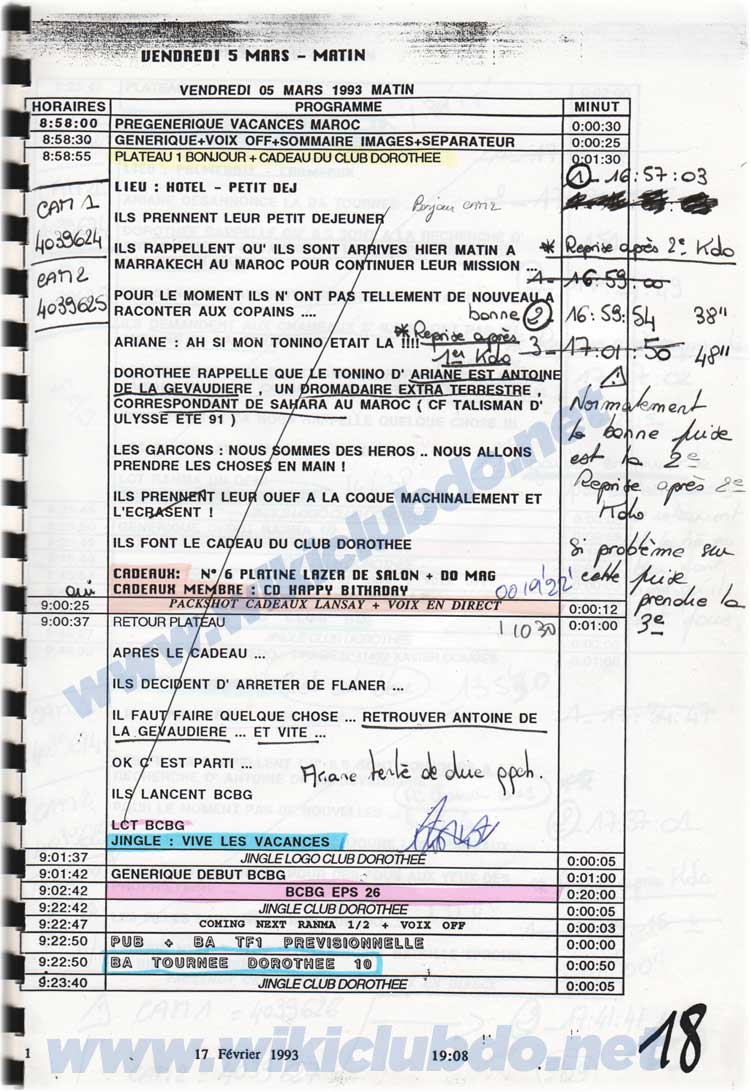 VENDREDI 5 MARS - MATIN
VENDREDI 05 MARS 1993 MATIN
HORAIRES PROGRAMME MINUT
8:58:00 PREGENERIQUE VACANCES MAROC 0:00:30
8:58:30 GENERIQUE+VOIX OFF+SOMMAIRE IMAGES+SEPARATEUR 0:00:25
8:58:55 PLATEAU 1 BONJOUR + CADEAU DU CLUB DOROTHEE 0:01:30
1 - 16:57:03
LIEU : HOTEL - PETIT DEJ
CAM 1
4039624
CAM 2
4039625
Bonjour CAM 2
ILS PRENNENT LEUR PETIT DEJEUNER
ILS RAPPELLENT QU' ILS SONT ARRIVES HIER MATIN A
MARRAKECH AU MAROC POUR CONTINUER LEUR MISSION ...
* Reprise après 2e Kdo
1 - 16:59:00
POUR LE MOMENT ILS N' ONT PAS TELLEMENT DE NOUVEAU A
RACONTER AUX COPAINS ....
bonne 2 - 16:59:54 38"
ARIANE : AH SI MON TONINO ETAIT LA !!!!
* Reprise après
1er Kdo
3 - 17:01:50 48"
DOROTHEE RAPPELLE QUE LE TONINO D' ARIANE EST ANTOINE
DE LA GEVAUDIERE , UN DROMADAIRE EXTRA TERRESTRE ,
CORRESPONDANT DE SAHARA AU MAROC ( CF TALISMAN D'
ULYSSE ETE 91 )
!
Normalement
la bonne prise
est la 2e
Reprise après 2e
Kdo
Si problème sur
cette prise
prendre la
3e
LES GARCONS : NOUS SOMMES DES HEROS .. NOUS ALLONS
PRENDRE LES CHOSES EN MAIN !
ILS PRENNENT LEUR OUEF A LA COQUE MACHINALEMENT ET
L'ECRASENT !
ILS FONT LE CADEAU DU CLUB DOROTHEE
CADEAUX: N° 6 PLATINE LAZER DE SALON + DO MAG
CADEAUX MEMBRE : CD HAPPY BITHADAY
00 19'22"
oui
9:00:25 PACKSHOT CADEAUX LANSAY + VOIX EN DIRECT 0:00:12
9:00:37 RETOUR PLATEAU 0:01:00
APRES LE CADEAU ...
ILS DECIDENT D' ARRETER DE FLANER ...
IL FAUT FAIRE QUELQUE CHOSE ... RETROUVER ANTOINE DE
LA GEVAUDIERE ... ET VITE ...
OK C' EST PARTI ...
ILS LANCENT BCBG
LCT BCBG
JINGLE : VIVE LES VACANCES
9:01:37 JINGLE LOGO CLUB DOROTHEE 0:00:05
9:01:42 GENERIQUE DEBUT BCBG 0:01:00
9:02:42 BCBG EPS 26 0:20:00
9:22:42 JINGLE CLUB DOROTHEE 0:00:05
9:22:47 COMING NEXT RANMA 1/2 + VOIX OFF 0:00:03
9:22:50 PUB + BA TF1 PREVISIONNELLE 0:00:00
9:22:50 BA TOURNEE DOROTHEE 10 0:00:50
9:23:40 JINGLE CLUB DOROTHEE 0:00:05
1 17 Février 1993 19:08
18
www.wikiclubdo.net
www.wikiclubdo.net